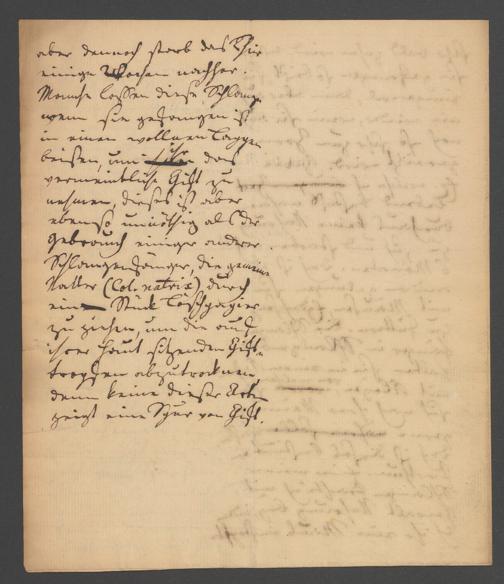 aber dennoch starb das Thier
einige Wochen nachher.
Manche lassen diese Schlange
wenn sie gefangen ist
in einen wollnen Lappen
beißen, um das
vermeintliche Gift zu
nehmen, dieses ist aber
ebenso unnöthig als der
Gebrauch einiger anderer
Schlangenfänger, die gemeine
Natter (Col. natrix) durch
ein Stück Löschpapier
zu ziehen, um die auf
ihrer Haut sitzenden Gift-
tropfen abzutrocknen
denn keine dieser Arten
zeigt eine Spur von Gift.